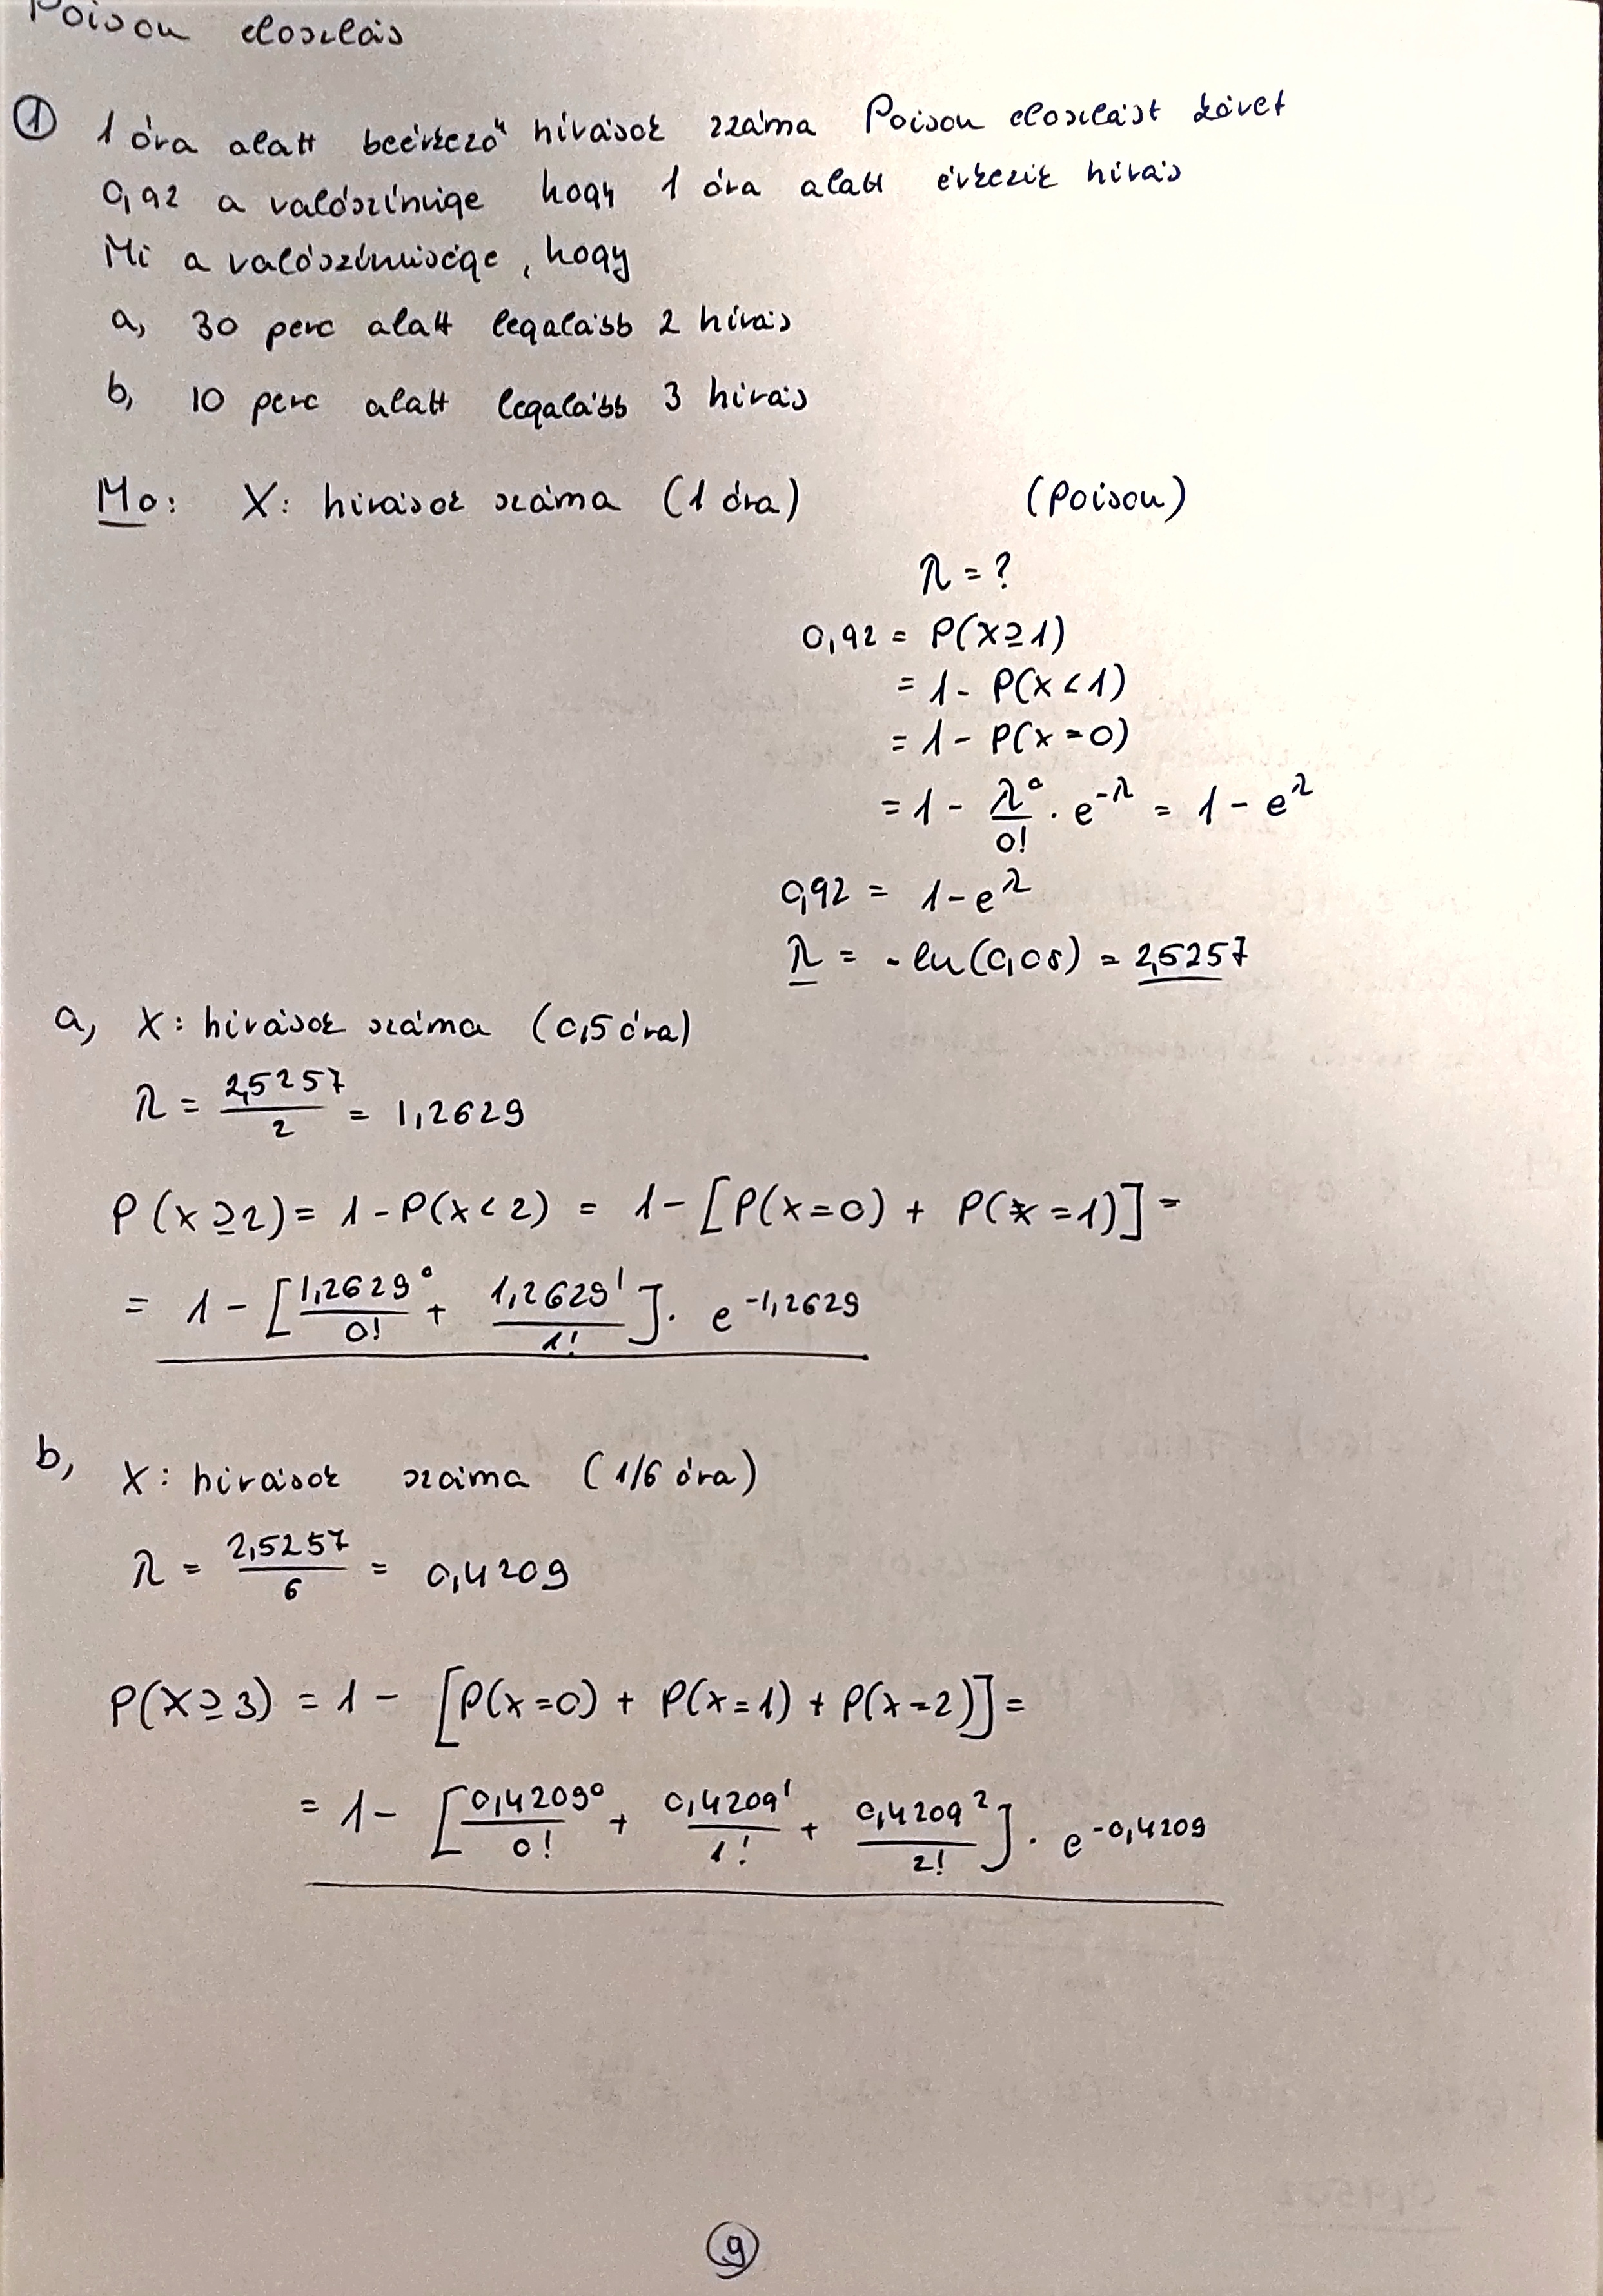 Poison eloszlás
① 1 óra alatt beérkező hívások száma Poison eloszlást követ
0,92 a valószínűge hogy 1 óra alatt érkezik hívás
Mi a valószínűsége, hogy
a, 30 perc alatt legalább 2 hívás
b, 10 perc alatt legalább 3 hívás
Mo: X: hívások száma (1 óra) (Poison)
λ = ?
0,92 = P(X≥1)
= 1 - P(X<1)
= 1 - P(X=0)
= 1 - λ⁰/0! · e^-λ = 1 - e^λ
0,92 = 1 - e^λ
λ = -ln(0,08) = 2,5257
a, X: hívások száma (0,5 óra)
λ = 2,5257/2 = 1,2629
P(X≥2) = 1 - P(X<2) = 1 - [P(X=0) + P(X=1)] =
= 1 - [1,2629⁰/0! + 1,2629¹/1!] · e^-1,2629
b, X: hívások száma (1/6 óra)
λ = 2,5257/6 = 0,4209
P(X≥3) = 1 - [P(X=0) + P(X=1) + P(X=2)] =
= 1 - [0,4209⁰/0! + 0,4209¹/1! + 0,4209²/2!] · e^-0,4209
⑨